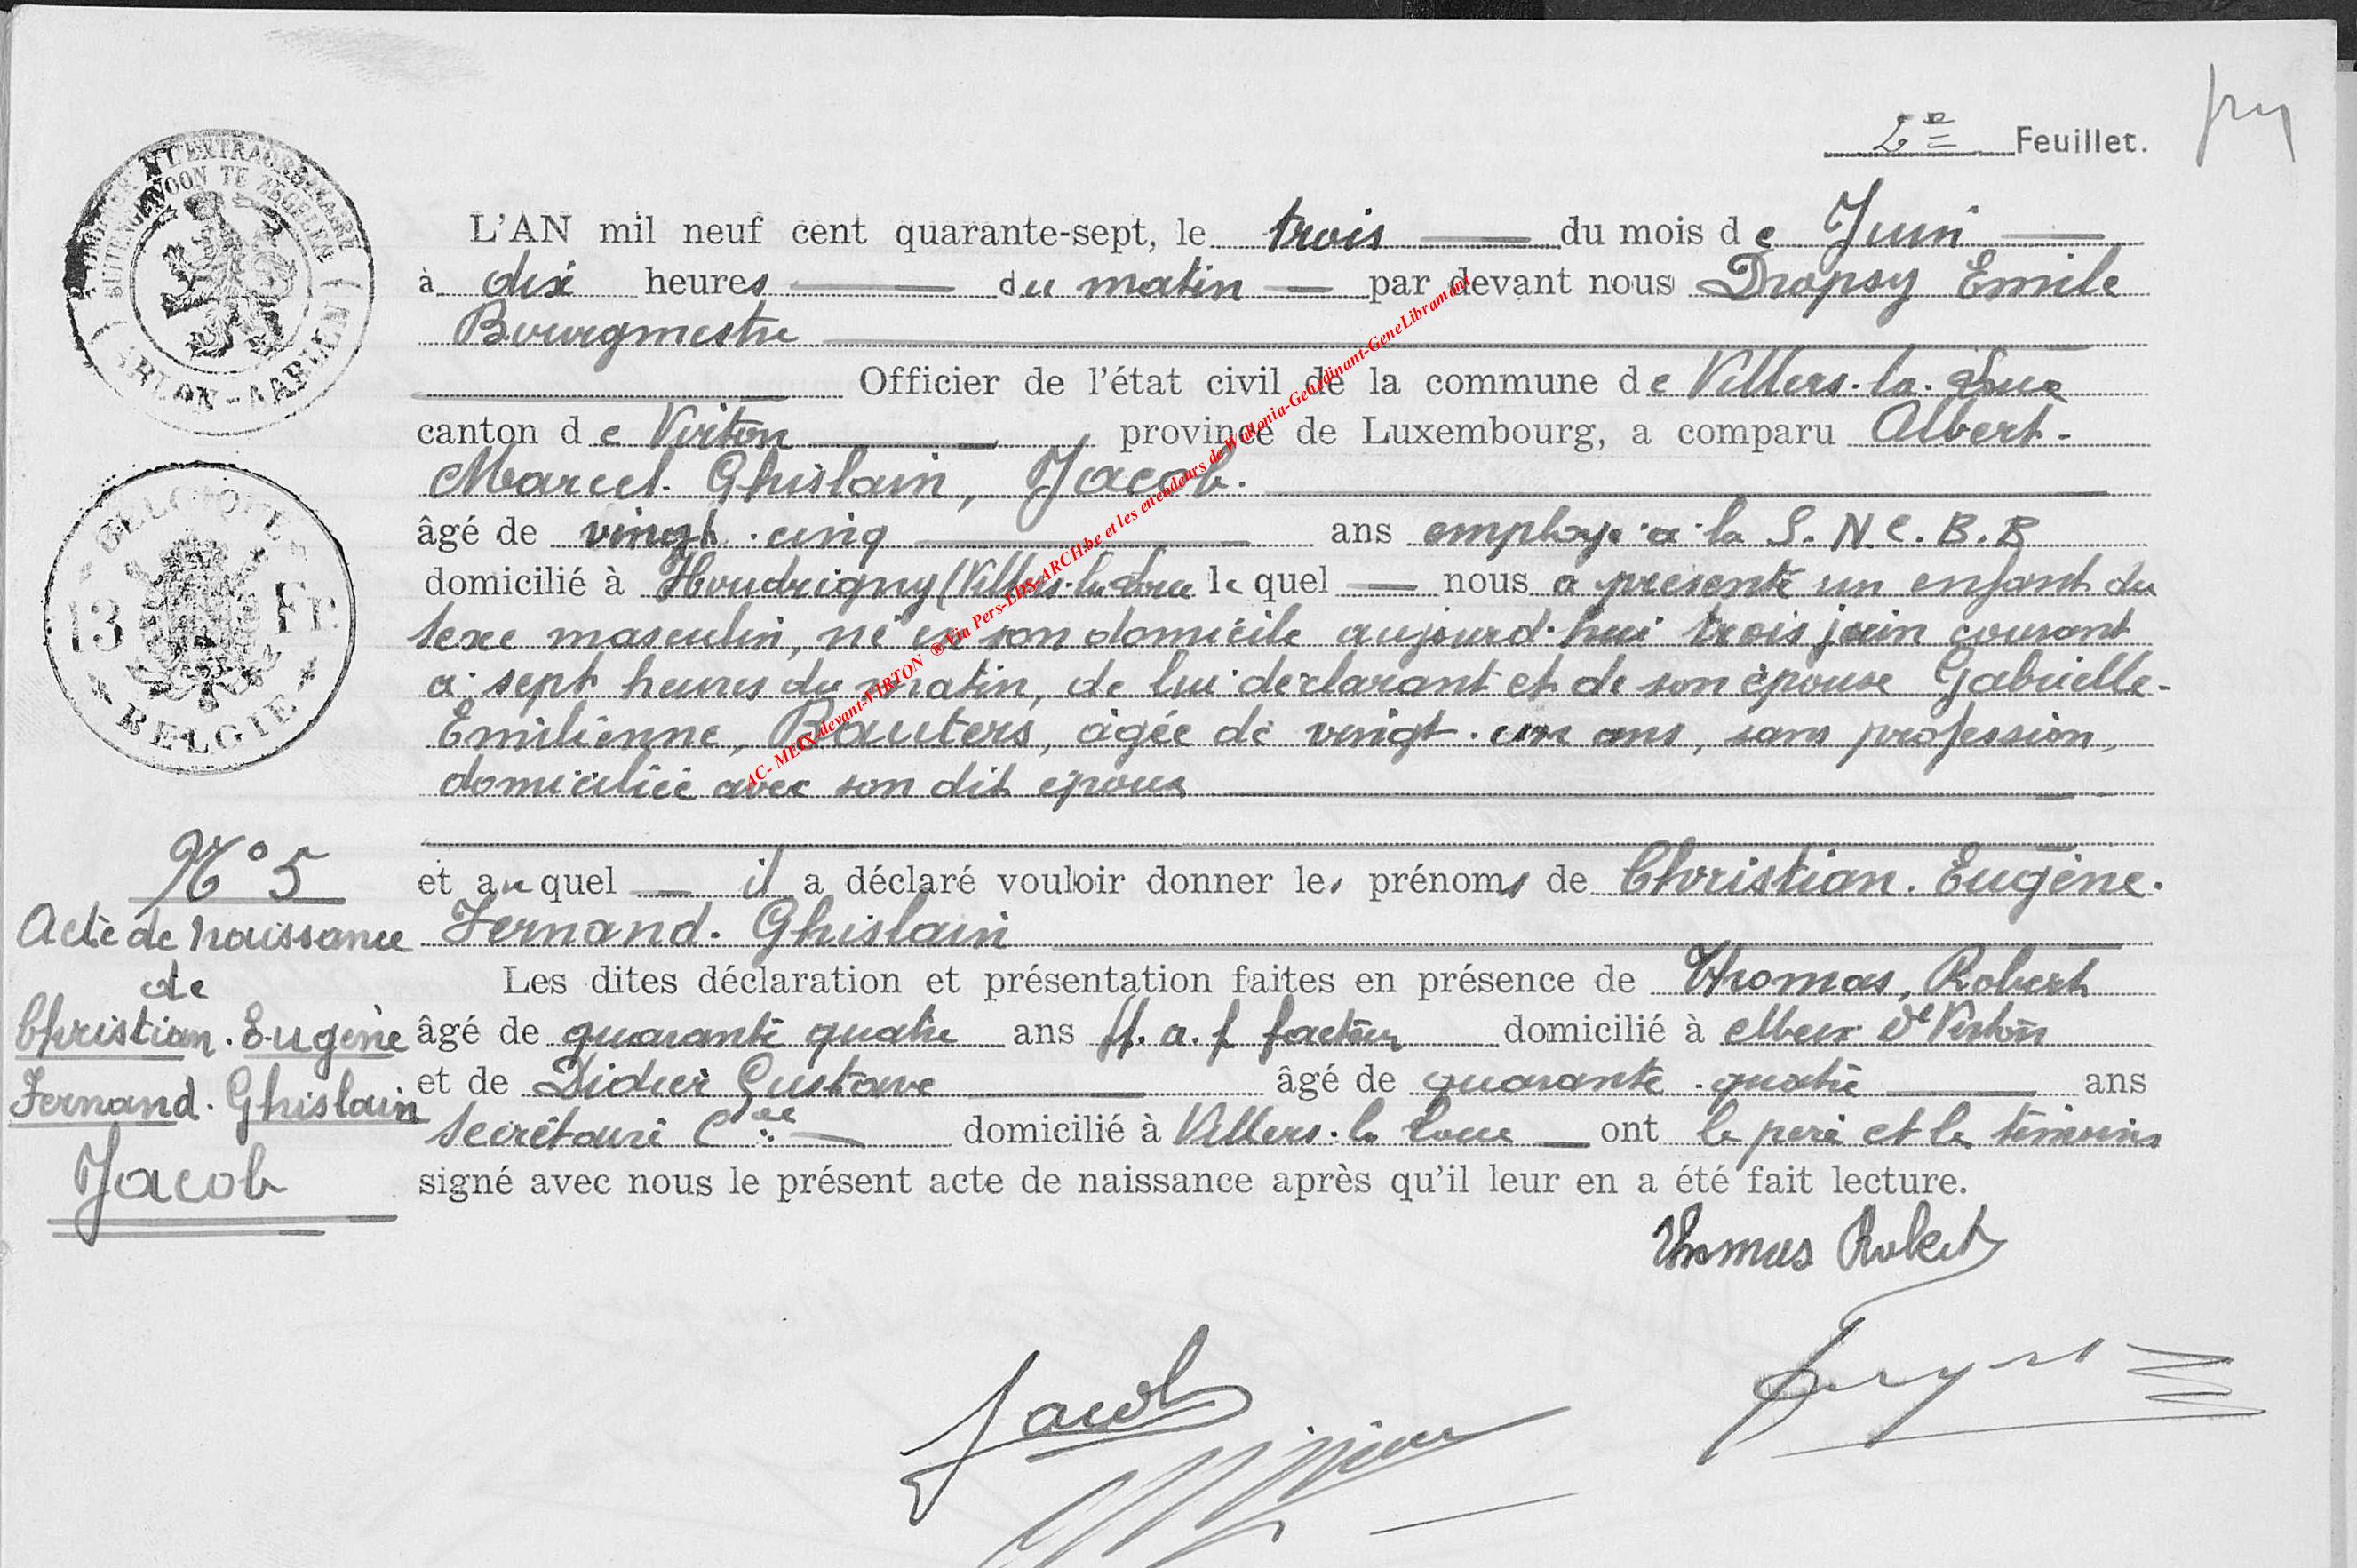 2e Feuillet.
TIMBRE EXTRAORDINAIRE
BUITENGEWOON TE ZEGELEN
ARLON - AARLEN
L'AN mil neuf cent quarante-sept, le trois du mois de Juin
à dix heures du matin par devant nous Dropsy Emile
Bourgmestre
Officier de l'état civil de la commune de Villers-la-Loue
canton de Virton province de Luxembourg, a comparu Albert-
Marcel-Ghislain, Jacob.
BELGIQUE
13 Fr.
BELGIE
âgé de vingt-cinq ans employé à la S.N.C.B.B
domicilié à Houdrigny (Villers-la-Loue lequel nous a présenté un enfant du
sexe masculin, né en son domicile aujourd'hui trois juin courant
à sept heures du matin, de lui déclarant et de son épouse Gabrielle-
Emilienne, Bauters, âgée de vingt-un ans, sans profession,
domiciliée avec son dit époux
N° 5
Acte de naissance
de
Christian-Eugène
Fernand-Ghislain
Jacob
et auquel il a déclaré vouloir donner les prénoms de Christian-Eugène-
Fernand-Ghislain
Les dites déclaration et présentation faites en présence de Thomas, Robert
âgé de quarante quatre ans ff. a. f facteur domicilié à Meix dt Virton
et de Didier Gustave âgé de quarante-quatre ans
secrétaire Cal domicilié à Villers-la-Loue ont le père et le témoins
signé avec nous le présent acte de naissance après qu'il leur en a été fait lecture.
Thomas Robert
Jacob
AC- MEIX-devant-VIRTON ® Via Pers-EDS-ARCH.be et les encodeurs de Wallonia-Genedinant-GeneLibramont